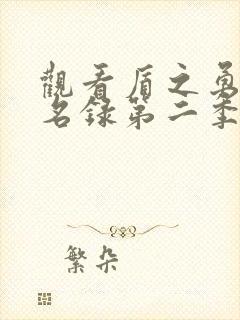 觀看盾之勇
名録第二季
繁朵